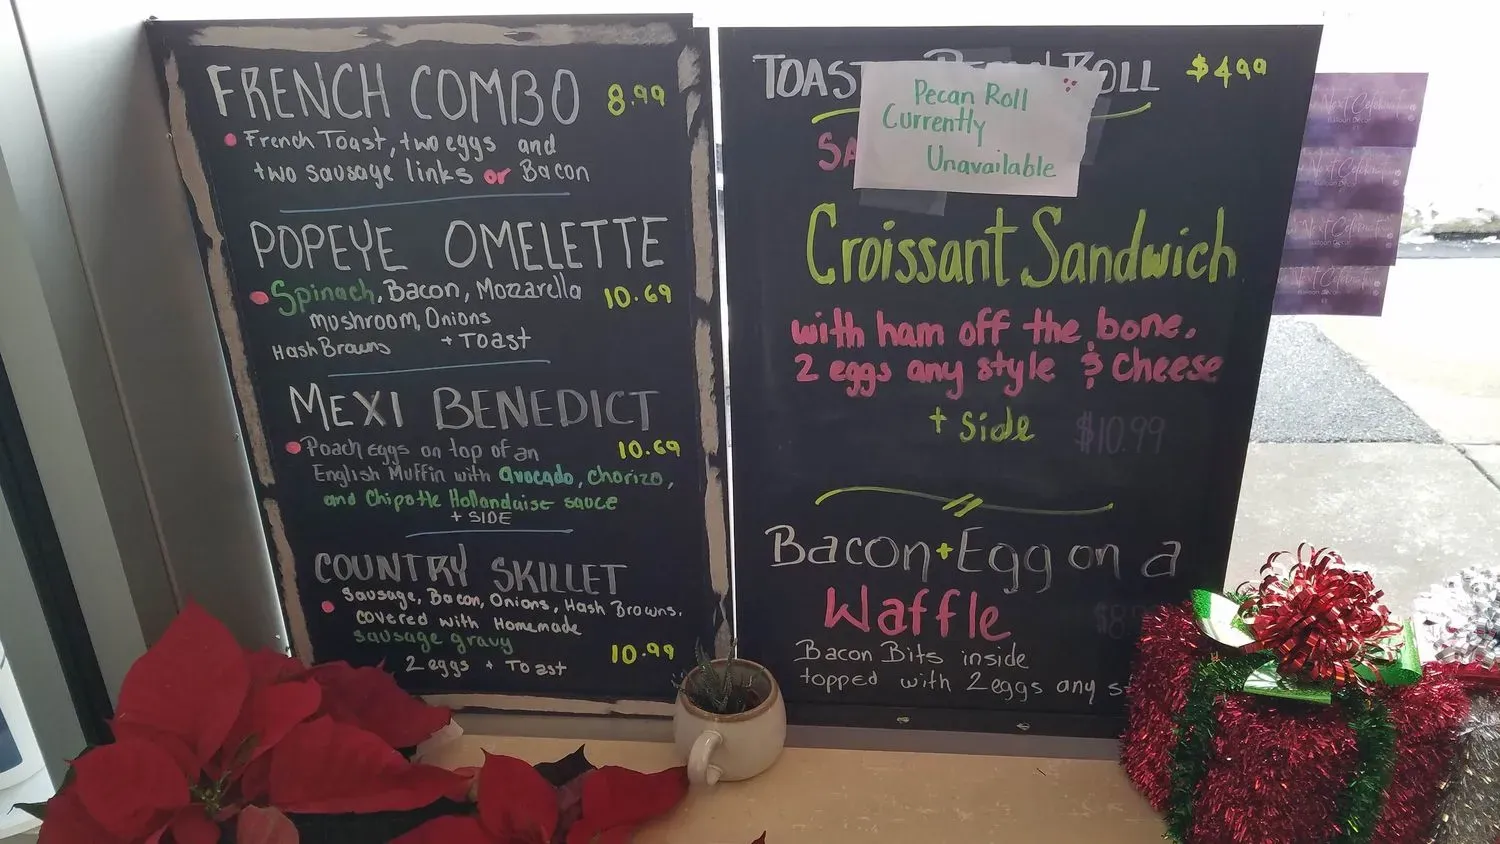 FRENCH COMBO 8.99
French Toast, two eggs and
two sausage links or Bacon
POPEYE OMELETTE
Spinach, Bacon, Mozzarella 10.69
mushroom, Onions
Hash Browns + Toast
MEXI BENEDICT
Poach eggs on top of an 10.69
English Muffin with avocado, chorizo,
and Chipotle Hollandaise sauce
+ SIDE
COUNTRY SKILLET
Sausage, Bacon, Onions, Hash Browns,
covered with Homemade
sausage gravy
2 eggs + Toast 10.99
TOAST ROLL $4.99
Pecan Roll
Currently
Unavailable
Croissant Sandwich
with ham off the bone,
2 eggs any style & Cheese
+ side $10.99
Bacon + Egg on a
Waffle
Bacon Bits inside
topped with 2 eggs any
Next Celebration
Balloon Decor
Next Celebration
Balloon Decor
Next Celebration
Balloon Decor
Next Celebration
Balloon Decor